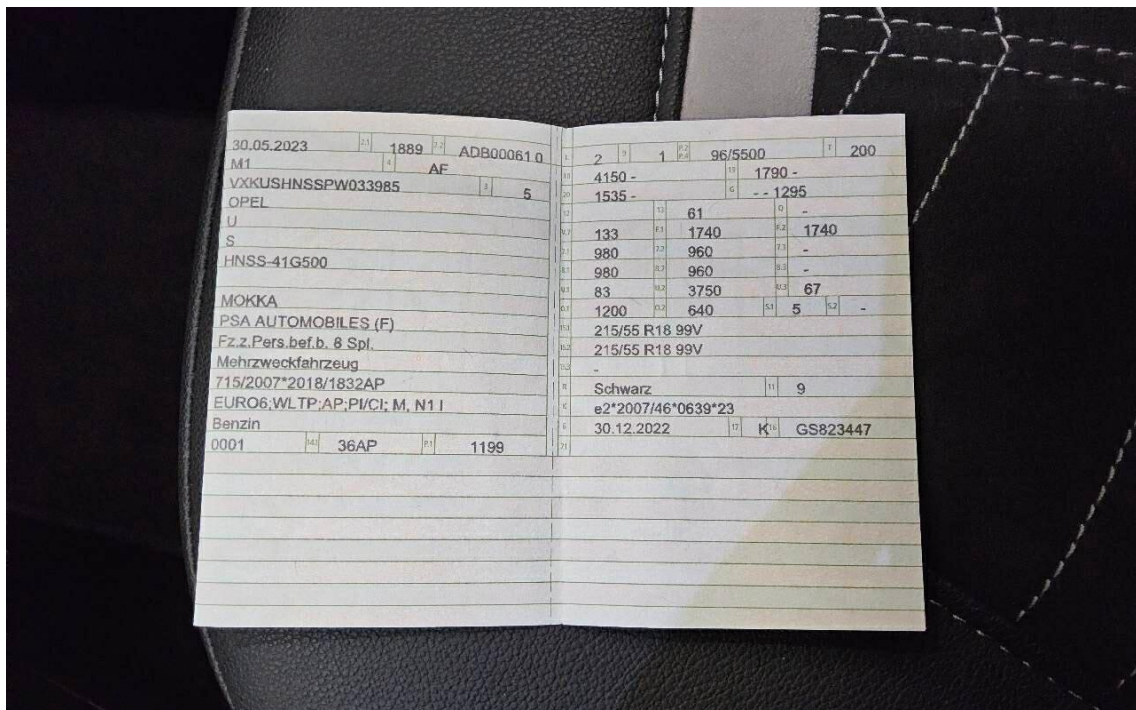 30.05.2023 2.1 1889 2.2 ADB00061 0
M1 4 AF
VXKUSHNSSPW033985 3 5
OPEL
U
S
HNSS-41G500
MOKKA
PSA AUTOMOBILES (F)
Fz.z.Pers.bef.b. 8 Spl.
Mehrzweckfahrzeug
715/2007*2018/1832AP
EURO6;WLTP;AP;PI/CI; M, N1 I
Benzin
0001 14.1 36AP P.1 1199
L 2 9 1 P.2 P.4 96/5500 T 200
18 4150 - 19 1790 -
20 1535 - G - - 1295
12 13 61 Q -
V.7 133 F.1 1740 F.2 1740
7.1 980 7.2 960 7.3 -
8.1 980 8.2 960 8.3 -
U.1 83 U.2 3750 U.3 67
O.1 1200 O.2 640 S.1 5 S.2 -
15.1 215/55 R18 99V
15.2 215/55 R18 99V
15.3 -
R Schwarz 11 9
K e2*2007/46*0639*23
6 30.12.2022 17 K 16 GS823447
21